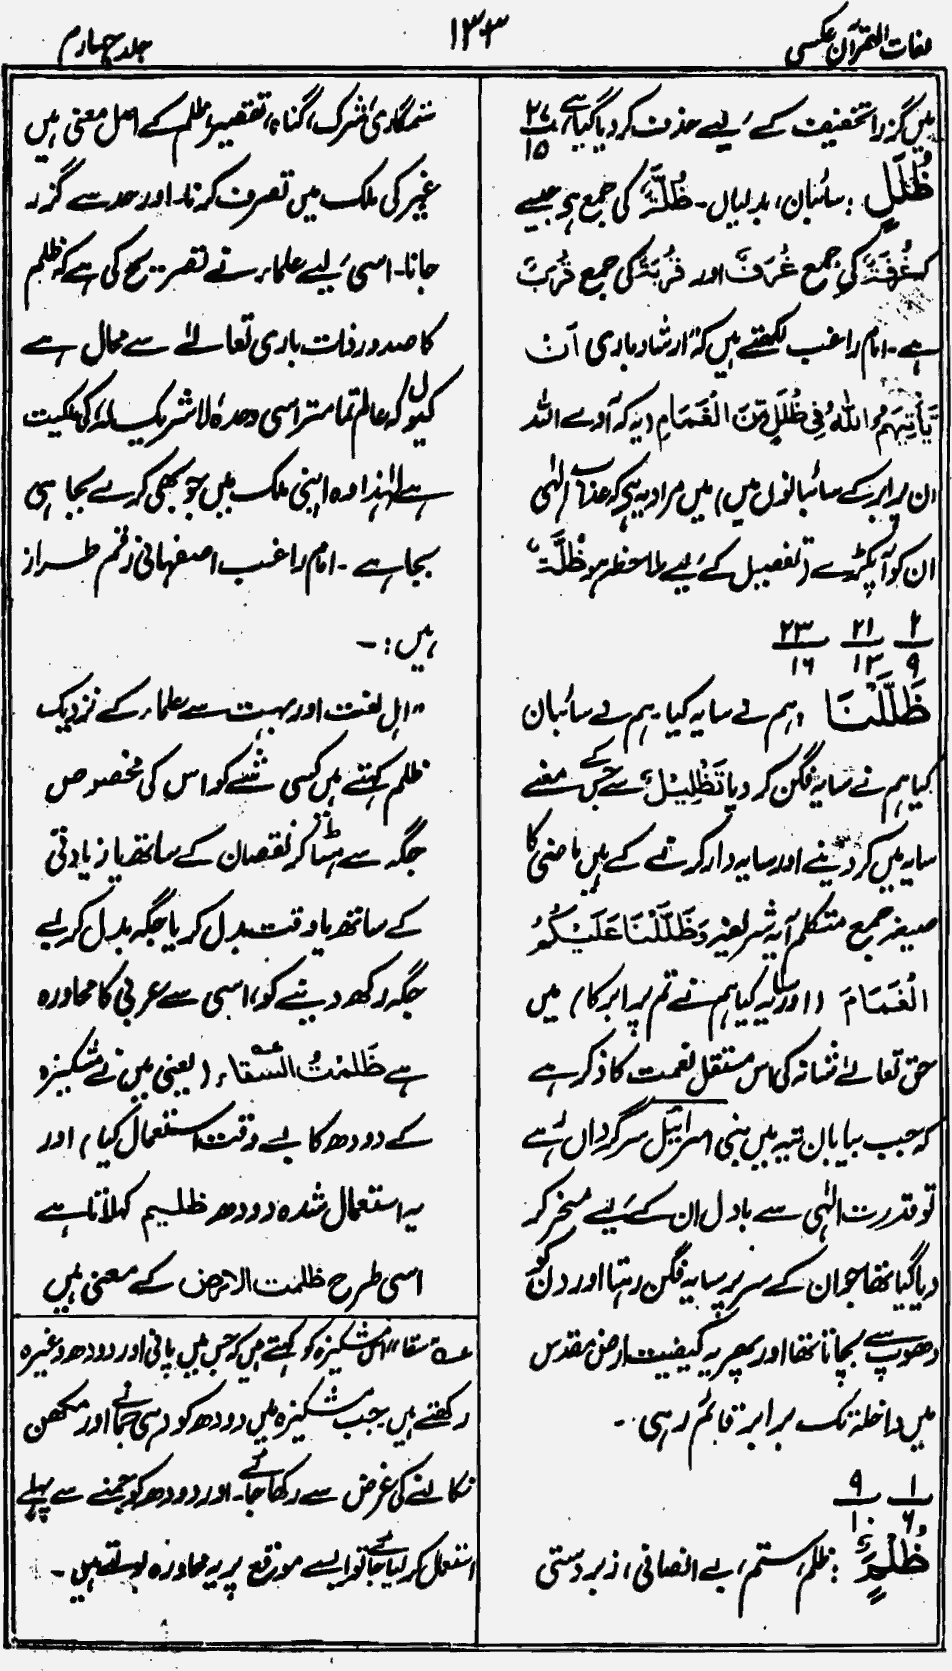 لغات القرآن عکسی
۱۳۳
جلد چہارم
میں گزرا تخفیف کے لیے حذف کر دیا گیا ہے، ۲۷/۱۵
ظُلَلٍ : سائبان، بدلیاں۔ ظُلَّةٌ کی جمع ہی جیسے
کہ غُرْفَةٌ کی جمع غُرَفٌ اور قُرْبَةٌ کی جمع قُرَبٌ
ہے۔ امام راغب لکھتے ہیں کہ ارشاد باری اَنْ
يَّأْتِيَهُمُ اللّٰهُ فِي ظُلَلٍ مِّنَ الْغَمَامِ (یہ کہ آوے اللہ
ان پر ابر کے سائبانوں میں) میں مراد یہ ہی کہ عذاب الٰہی
ان کو آ پکڑے (تفصیل کے لیے ملاحظہ ہو ظُلَّةٌ)
۲/۹ ۲۱/۱۳ ۲۳/۱۶
ظَلَّلْنَا : ہم نے سایہ کیا۔ ہم نے سائبان
کیا ہم نے سایہ فگن کر دیا تَظْلِيْلٌ سے جس کے معنے
سایہ میں کر دینے اور سایہ دار کرنے کے ہیں ماضی کا
صیغہ جمع متکلم آیہ شریفہ وَظَلَّلْنَا عَلَيْكُمُ
الْغَمَامَ (اور سایہ کیا ہم نے تم پر ابر کا) میں
حق تعالےٰ شانہ کی اس مستقل نعمت کا ذکر ہے
کہ جب بیابان تیہ میں بنی اسرائیل سرگرداں رہے
تو قدرت الٰہی سے بادل ان کے لیے مسخر کر
دیا گیا تھا جو ان کے سر پر سایہ فگن رہتا اور دن کو
دھوپ سے بچاتا تھا اور پھر یہ کیفیت ارض مقدس
میں داخلہ تک برابر قائم رہی ۔۔
۱/۶ ۹/۱۰
ظُلْمٍ : ظلم، ستم، بے انصافی، زبردستی
ستمگاری، شرک، گناہ، تقصیر، ظلم کے اصل معنی ہیں
غیر کی ملک میں تصرف کرنا۔ اور حد سے گزر
جانا۔ اسی لیے علماء نے تصریح کی ہے کہ ظلم
کا صدور ذات باری تعالےٰ سے محال ہے
کیوں کہ عالم تمامتر اسی وحدہٗ لاشریک لہٗ کی ملکیت
ہے لہٰذا وہ اپنی ملک میں جو بھی کرے بجا ہی
بجا ہے ۔ امام راغب اصفہانی رقم طراز
ہیں :۔
"اہل لغت اور بہت سے علماء کے نزدیک
ظلم کہتے ہیں کسی شئے کو اس کی مخصوص
جگہ سے ہٹا کر نقصان کے ساتھ یا زیادتی
کے ساتھ یا وقت بدل کر یا جگہ بدل کر بے
جگہ رکھ دینے کو، اسی سے عربی کا محاورہ
ہے ظَلَمْتُ السِّقَاءَ عہ (یعنی میں نے مشکیزہ
کے دودھ کا بے وقت استعمال کیا) اور
یہ استعمال شدہ دودھ ظلیم کہلاتا ہے
اسی طرح ظلمت الارض کے معنی ہیں
عہ "سقا" اس مشکیزہ کو کہتے ہیں کہ جس میں پانی اور دودھ وغیرہ
رکھتے ہیں۔ جب مشکیزہ میں دودھ کو دہی جمانے اور مکھن
نکالنے کی غرض سے رکھا جائے۔ اور دودھ کو جمنے سے پہلے
استعمال کر لیا جائے تو ایسے موقع پر یہ محاورہ بولتے ہیں ۔